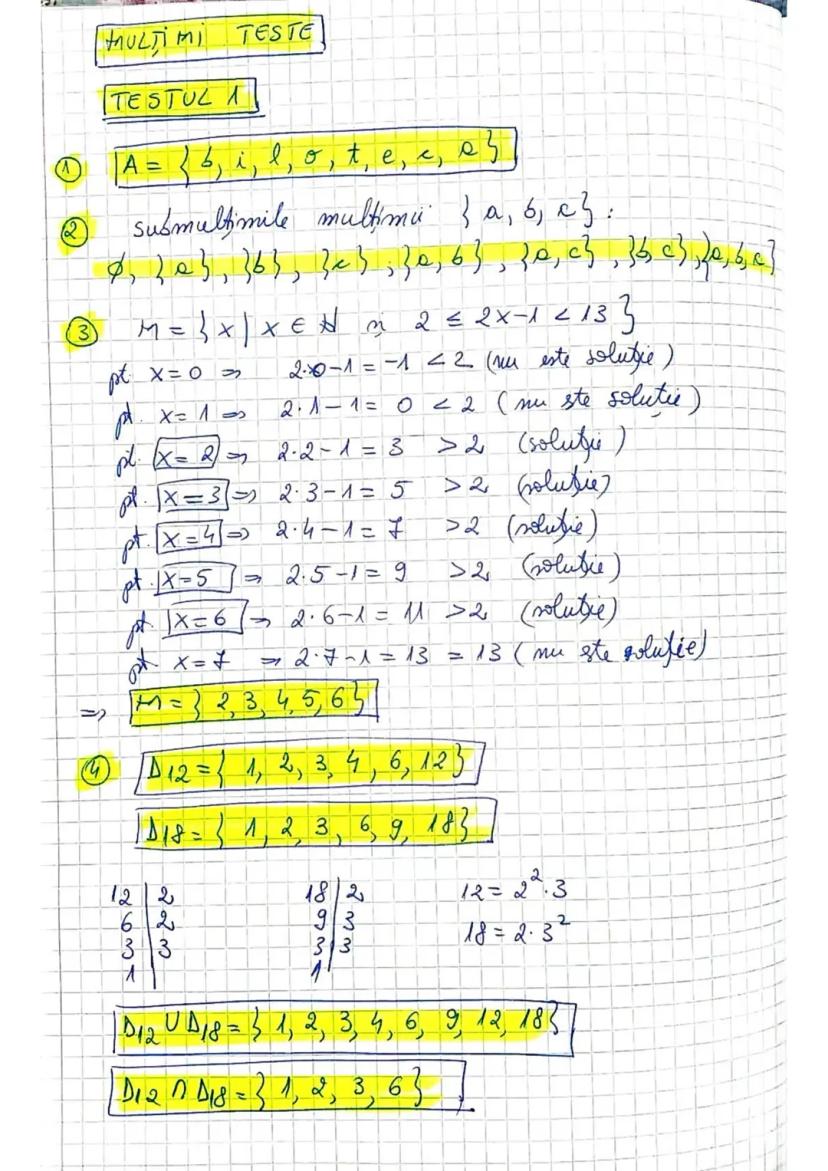 MULȚIMI TESTE
TESTUL 1
① A = { b, i, l, o, t, e, c, a }
② submulțimile mulțimii { a, b, c } :
∅, {a}, {b}, {c}, {a, b}, {a, c}, {b, c}, {a, b, c}
③ M = { x | x ∈ N și 2 ≤ 2x-1 < 13 }
pt. x = 0 ⇒ 2·0-1 = -1 < 2 (nu este soluție)
pt. x = 1 ⇒ 2·1-1 = 0 < 2 (nu ste soluție)
pt. x = 2 ⇒ 2·2-1 = 3 > 2 (soluție)
pt. x = 3 ⇒ 2·3-1 = 5 > 2 (soluție)
pt. x = 4 ⇒ 2·4-1 = 7 > 2 (soluție)
pt. x = 5 ⇒ 2·5-1 = 9 > 2 (soluție)
pt. x = 6 ⇒ 2·6-1 = 11 > 2 (soluție)
pt x = 7 ⇒ 2·7-1 = 13 = 13 (nu ste soluție)
⇒ M = { 2, 3, 4, 5, 6 }
④ D12 = { 1, 2, 3, 4, 6, 12 }
D18 = { 1, 2, 3, 6, 9, 18 }
12 | 2 18 | 2 12 = 2²·3
6 | 2 9 | 3 18 = 2·3²
3 | 3 3 | 3
1 | 1 |
D12 ∪ D18 = { 1, 2, 3, 4, 6, 9, 12, 18 }
D12 ∩ D18 = { 1, 2, 3, 6 }